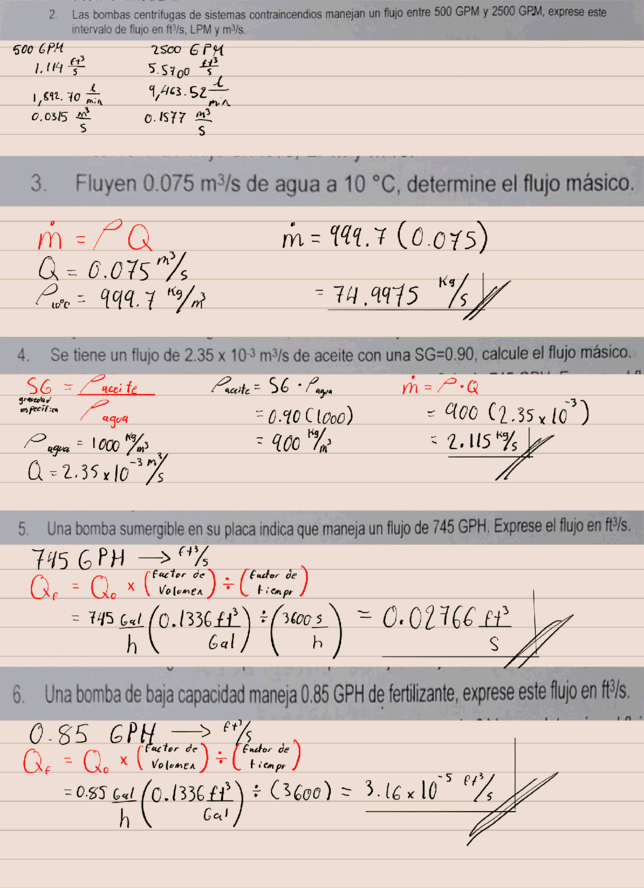 2. Las bombas centrifugas de sistemas contraincendios manejan un flujo entre 500 GPM y 2500 GPM, exprese este
intervalo de flujo en ft³/s, LPM y m³/s.
500 GPM 2500 GPM
1.114 ft³/s 5.5700 ft³/s
1,892.70 l/min 9,463.52 l/min
0.0315 m³/s 0.1577 m³/s
3. Fluyen 0.075 m³/s de agua a 10 °C, determine el flujo másico.
ṁ = ρ Q ṁ = 999.7 (0.075)
Q = 0.075 m³/s
ρ10°c = 999.7 Kg/m³ = 74.9975 Kg/s
4. Se tiene un flujo de 2.35 x 10⁻³ m³/s de aceite con una SG=0.90, calcule el flujo másico.
SG = ρaceite / ρagua ρaceite = SG · ρagua ṁ = ρ·Q
gravedad especifica = 0.90 (1000) = 900 (2.35 x 10⁻³)
ρagua = 1000 Kg/m³ = 900 Kg/m³ = 2.115 Kg/s
Q = 2.35 x 10⁻³ m³/s
5. Una bomba sumergible en su placa indica que maneja un flujo de 745 GPH. Exprese el flujo en ft³/s.
745 GPH → ft³/s
Qf = Qo x (Factor de Volumen) ÷ (Factor de tiempo)
= 745 Gal/h (0.1336 ft³/Gal) ÷ (3600 s/h) = 0.02766 ft³/s
6. Una bomba de baja capacidad maneja 0.85 GPH de fertilizante, exprese este flujo en ft³/s.
0.85 GPH → ft³/s
Qf = Qo x (Factor de Volumen) ÷ (Factor de tiempo)
= 0.85 Gal/h (0.1336 ft³/Gal) ÷ (3600) = 3.16 x 10⁻⁵ ft³/s